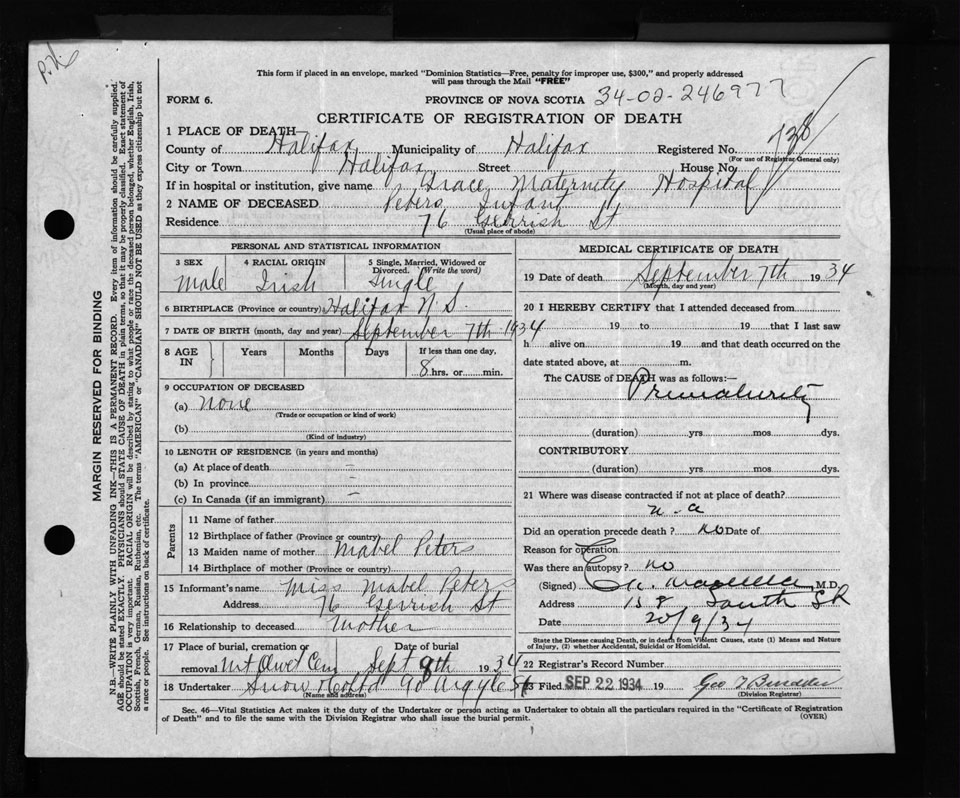 P.N.
This form if placed in an envelope, marked "Dominion Statistics—Free, penalty for improper use, $300," and properly addressed
will pass through the Mail "FREE"
FORM 6.
PROVINCE OF NOVA SCOTIA 34-02-246977
CERTIFICATE OF REGISTRATION OF DEATH
1 PLACE OF DEATH—
County of Halifax Municipality of Halifax Registered No. 738
(For use of Registrar General only)
City or Town Halifax Street House No.
If in hospital or institution, give name Grace Maternity Hospital
2 NAME OF DECEASED Peters Infant
Residence 76 Gerrish St
(Usual place of abode)
PERSONAL AND STATISTICAL INFORMATION
3 SEX 4 RACIAL ORIGIN 5 Single, Married, Widowed or
Divorced. (Write the word)
Male Irish Single
6 BIRTHPLACE (Province or country) Halifax N.S.
7 DATE OF BIRTH (month, day and year) September 7th 1934
8 AGE IN Years Months Days If less than one day,
8 hrs. or min.
9 OCCUPATION OF DECEASED
(a) None
(Trade or occupation or kind of work)
(b)
(Kind of industry)
10 LENGTH OF RESIDENCE (in years and months)
(a) At place of death —
(b) In province —
(c) In Canada (if an immigrant) —
Parents
11 Name of father
12 Birthplace of father (Province or country)
13 Maiden name of mother Mabel Peters
14 Birthplace of mother (Province or country)
15 Informant's name Miss Mabel Peters
Address 76 Gerrish St
16 Relationship to deceased Mother
17 Place of burial, cremation or Date of burial
removal Mt Olivet Cem Sept 8th 1934
18 Undertaker Snow & Co Ltd 90 Argyle St
(Name and address)
MEDICAL CERTIFICATE OF DEATH
19 Date of death September 7th 1934
(Month, day and year)
20 I HEREBY CERTIFY that I attended deceased from
19 to 19 that I last saw
h alive on 19 and that death occurred on the
date stated above, at m.
The CAUSE of DEATH was as follows:—
Prematurity
(duration) yrs mos dys.
CONTRIBUTORY
(duration) yrs mos dys.
21 Where was disease contracted if not at place of death?
n.a
Did an operation precede death? No Date of
Reason for operation
Was there an autopsy? No
(Signed) M.D.
Address 158 South St
Date 20/9/34
State the Disease causing Death, or in death from Violent Causes, state (1) Means and Nature
of Injury, (2) whether Accidental, Suicidal or Homicidal.
22 Registrar's Record Number
23 Filed SEP 22 1934 19 Geo
(Division Registrar)
Sec. 46—Vital Statistics Act makes it the duty of the Undertaker or person acting as Undertaker to obtain all the particulars required in the "Certificate of Registration
of Death" and to file the same with the Division Registrar who shall issue the burial permit. (OVER)
MARGIN RESERVED FOR BINDING
N.B.—WRITE PLAINLY WITH UNFADING INK—THIS IS A PERMANENT RECORD. Every item of information should be carefully supplied.
AGE should be stated EXACTLY. PHYSICIANS should STATE CAUSE OF DEATH in plain terms, so that it may be properly classified. Exact statement of
OCCUPATION is very important. RACIAL ORIGIN will be described by stating to what people or race the deceased person belonged, whether English, Irish,
Scottish, French, German, Russian, Ruthenian, etc. The terms "AMERICAN" or "CANADIAN" SHOULD NOT BE USED as they express citizenship but not
a race or people. See instructions on back of certificate.